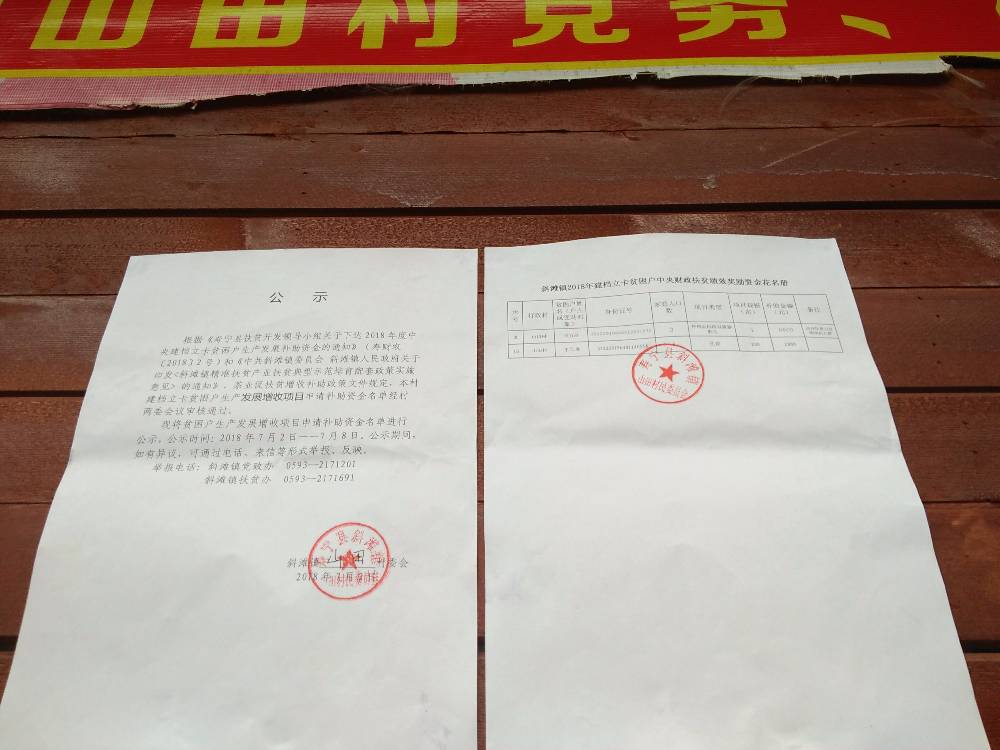 山田村党务、
公 示
根据《寿宁县扶贫开发领导小组关于下达 2018 年度中
央建档立卡贫困户生产发展补助资金的通知》（寿财农
〔2018〕32 号）和《中共斜滩镇委员会 斜滩镇人民政府关于
印发<斜滩镇精准扶贫产业扶贫典型示范项目配套政策实施
意见>的通知》、茶业促扶贫增收补助政策文件规定，本村
建档立卡贫困户生产发展增收项目申请补助资金名单经村
两委会议审核通过。
现将贫困户生产发展增收项目申请补助资金名单进行
公示，公示时间：2018 年 7 月 2 日——7 月 8 日。公示期间，
如有异议，可通过电话、来信等形式举报、反映。
举报电话：斜滩镇党政办 0593—2171201
斜滩镇扶贫办 0593—2171691
斜滩镇 山田 村委会
2018 年 7 月
寿宁县斜滩镇
山田村民委员会
斜滩镇2018年建档立卡贫困户中央财政扶贫绩效奖励资金花名册
序号 行政村 贫困户姓名（户主或受助对象） 身份证号 家庭人口数 项目类型 项目规模（亩） 补助金额（元） 备注
寿宁县斜滩镇
山田村民委员会